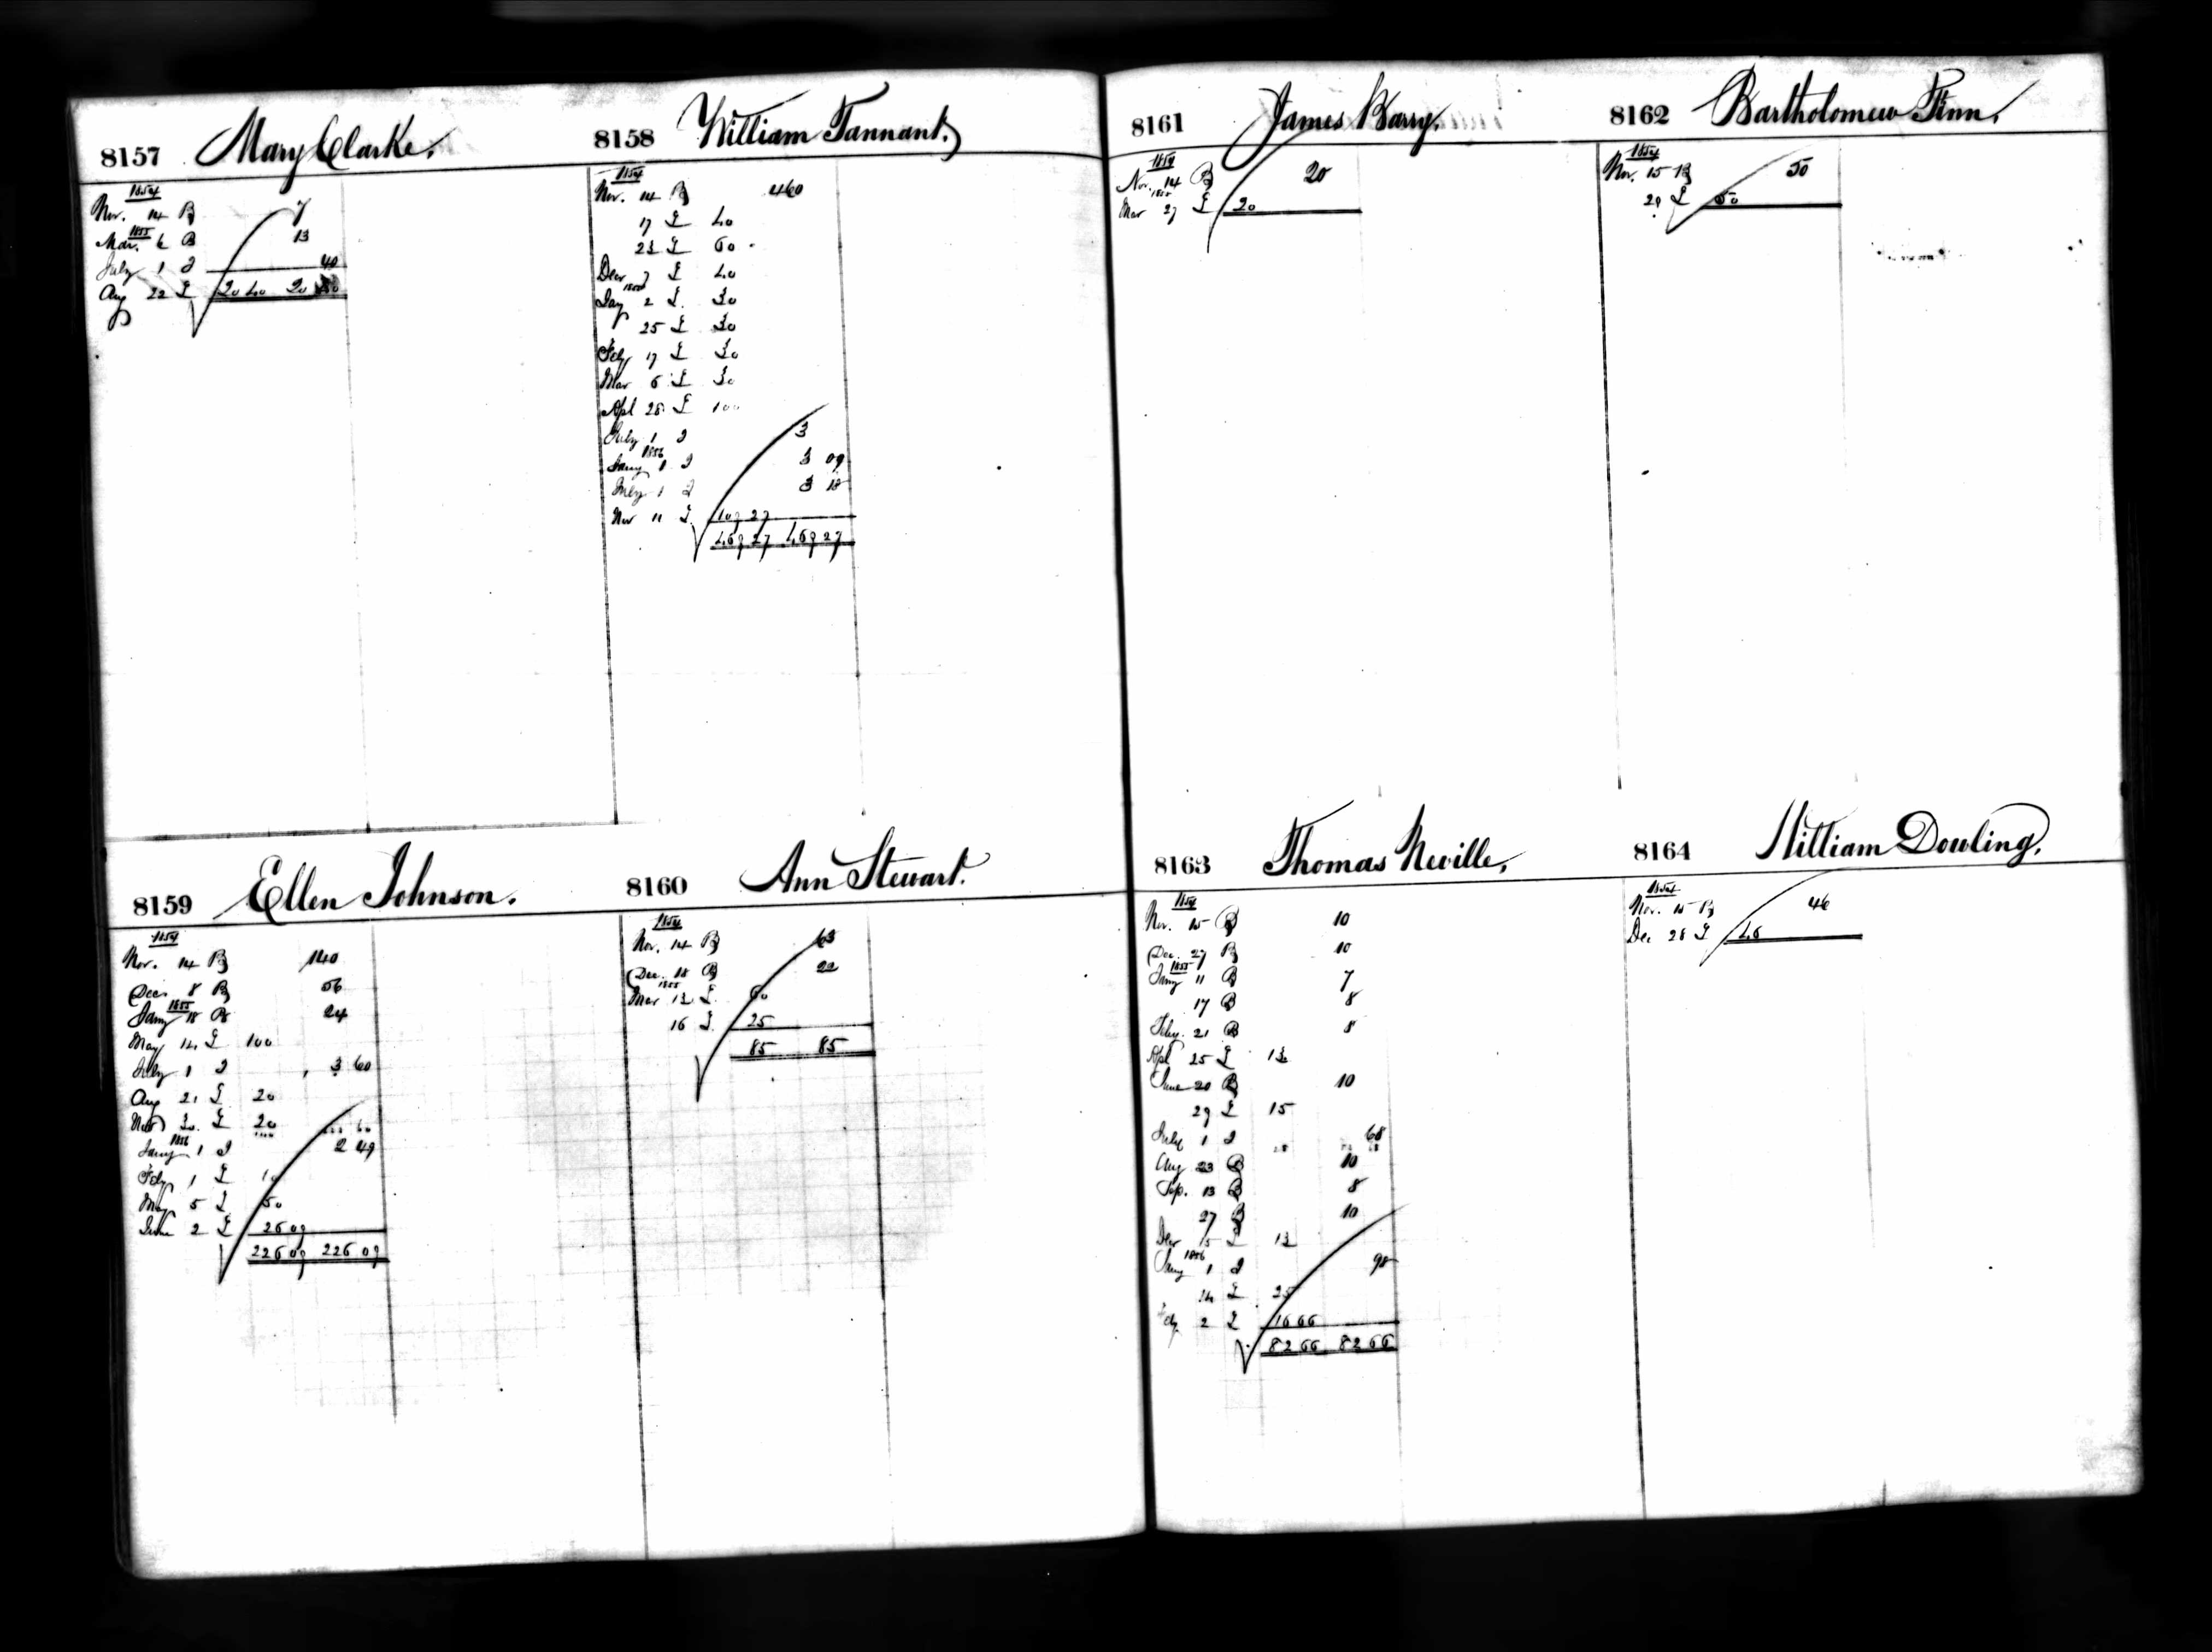 8157 Mary Clarke.
1854
Nov. 14 B 7
1855
Mar. 6 B 13
July 1 I 40
Aug 22 L 20 40 20 40
8158 William Tannant.
1854
Nov. 14 B 460
17 L 40
23 L 60
Decr 7 L 40
1855
Jany 2 L 30
25 L 30
Feby 17 L 30
Mar 6 L 30
Apl 28 L 100
July 1 I 3
1856
Jany 1 I 3 09
July 1 I 3 18
Nov 11 L 109 27
469 27 469 27
8159 Ellen Johnson.
1854
Nov. 14 B 140
Dec. 8 B 56
1855
Jany 18 B 24
May 14 L 100
July 1 I 3 60
Aug 21 L 20
Nov 30 L 20
1856
Jany 1 I 2 49
Feby 1 L 10
May 5 L 50
June 2 L 26 09
226 09 226 09
8160 Ann Stewart.
1854
Nov. 14 B 63
Dec. 18 B 22
1855
Mar 13 L 60
16 L 25
85 85
8161 James Barry.
1854
Nov. 14 B 20
1855
Mar 27 L 20
8162 Bartholomew Finn.
1854
Nov. 15 B 50
29 L 50
8163 Thomas Neville,
1854
Nov. 15 B 10
Dec. 27 B 10
1855
Jany 11 B 7
17 B 8
Feby. 21 B 8
Apl 25 L 13
June 20 B 10
29 L 15
July 1 I 68
Aug 23 B 10
Sep. 13 B 8
27 B 10
Decr 15 L 13
1856
Jany 1 I 98
14 L 25
Feby 2 L 16 66
82 66 82 66
8164 William Dowling.
1854
Nov. 15 B 46
Dec 28 L 46